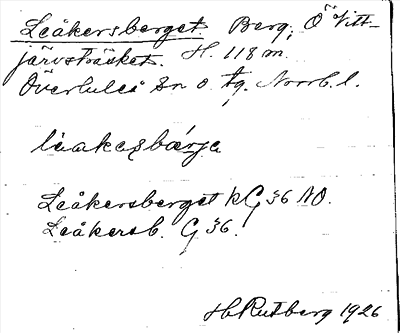 Leåkersberget. Berg, Ö Vitt-
järvsträsket. H. 118 m.
Överluleå Sn o. tg. Norrb. l.
liakesbærja
Leåkersberget kG 36 NO.
Leåkersb. G 36.
H Rutberg 1926